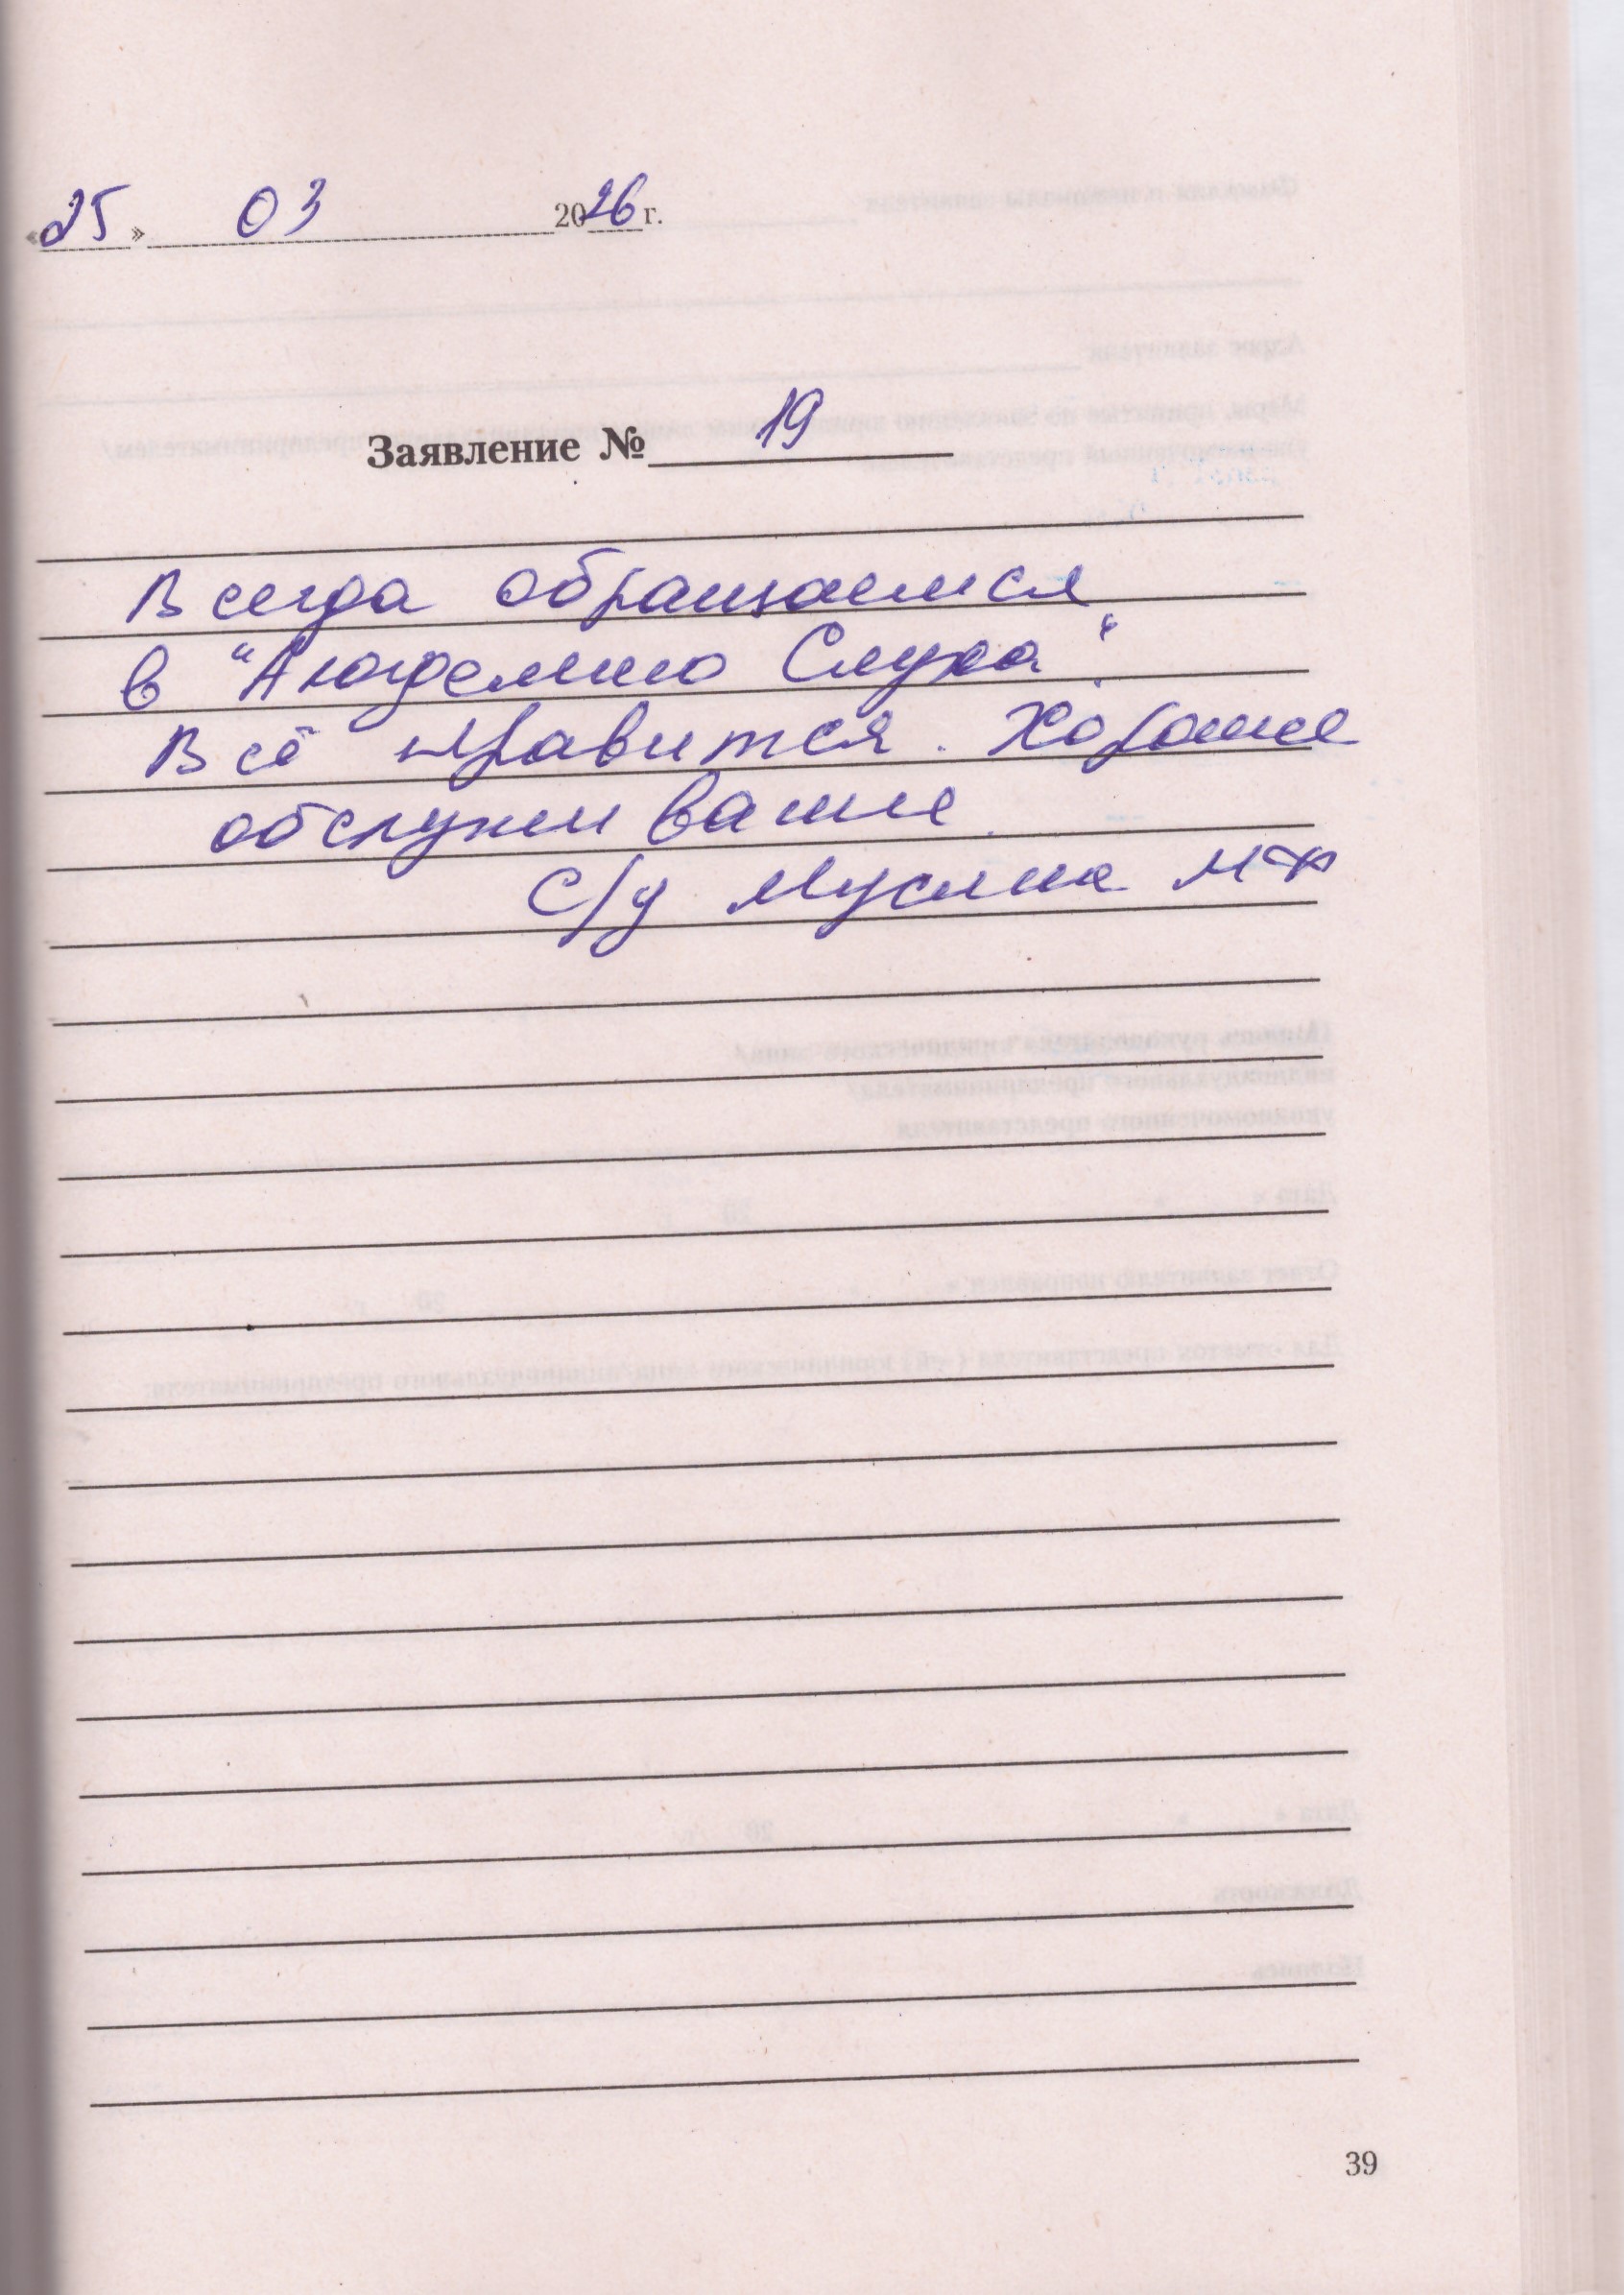 «25» 03 2026 г.
Заявление № 19
Всегда обращаемся
в "Академию Слуха".
Всё нравится. Хорошее
обслуживание.
с/у Мусина
39